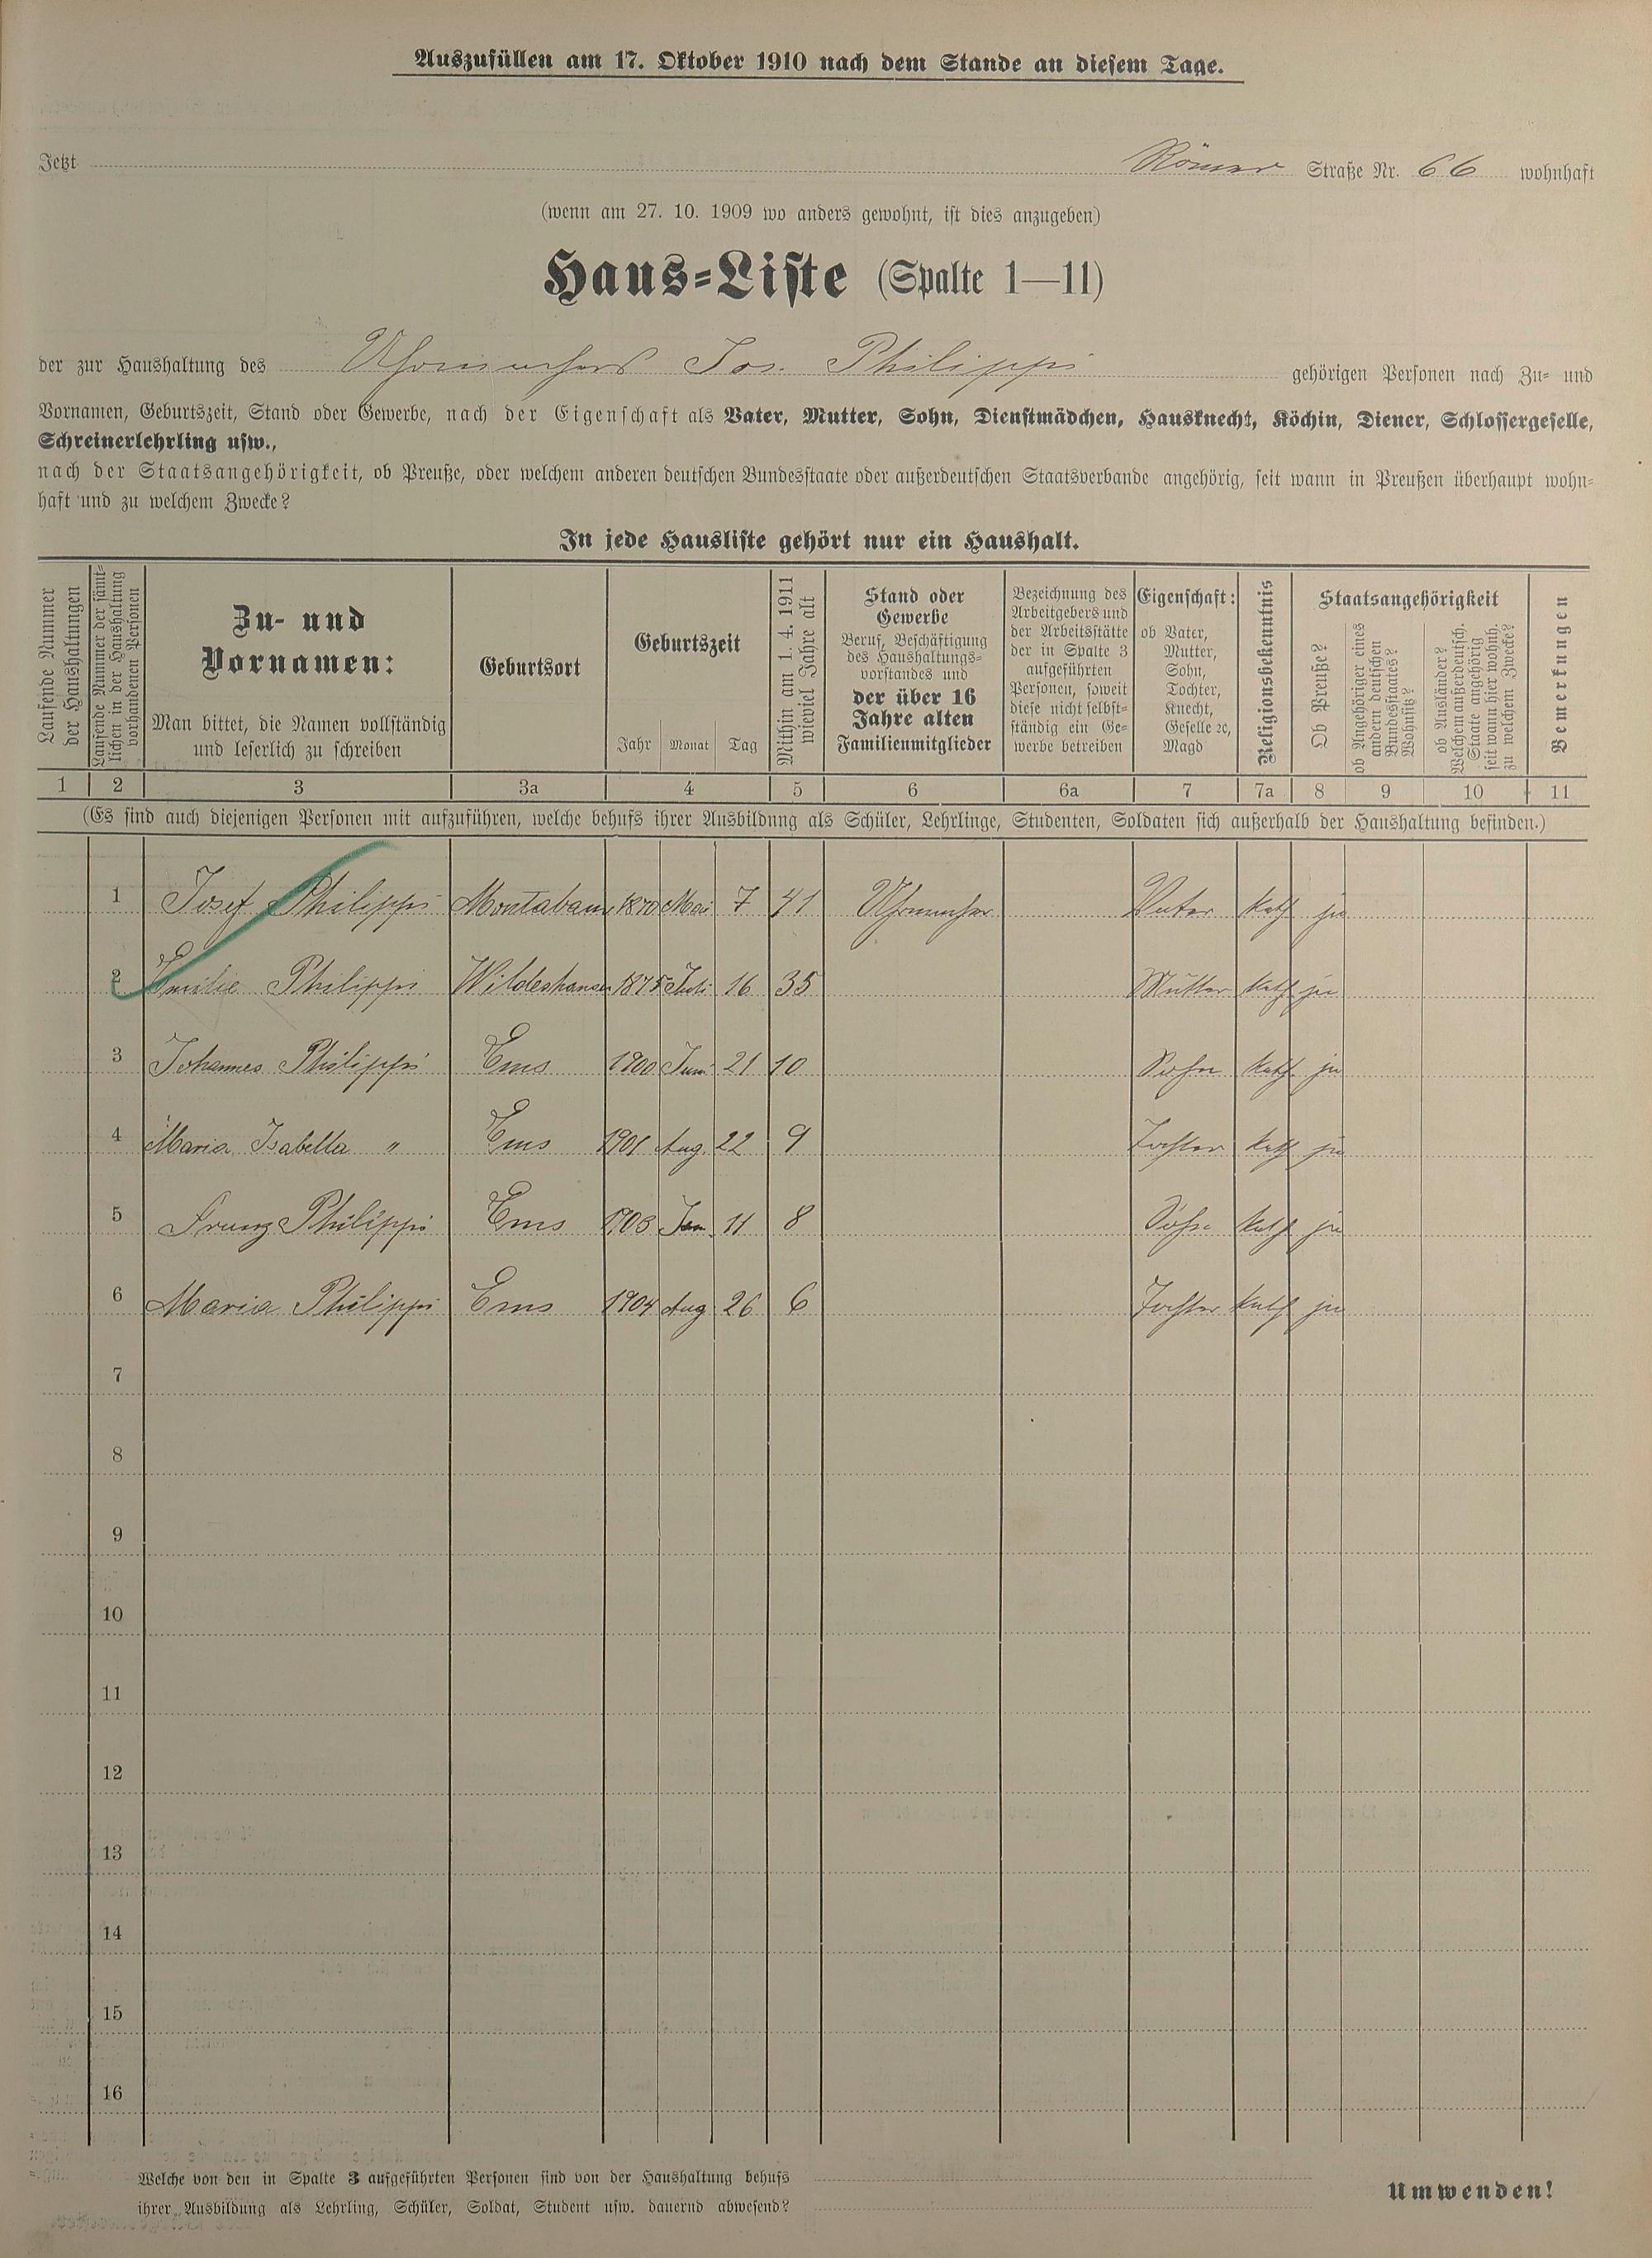 Auszufüllen am 17. Oktober 1910 nach dem Stande an diesem Tage.
Jetzt Römer Straße Nr. 66 wohnhaft
(wenn am 27. 10. 1909 wo anders gewohnt, ist dies anzugeben)
Haus-Liste (Spalte 1—11)
der zur Haushaltung des Uhrmachers Jos. Philippi gehörigen Personen nach Zu- und
Vornamen, Geburtszeit, Stand oder Gewerbe, nach der Eigenschaft als Vater, Mutter, Sohn, Dienstmädchen, Hausknecht, Köchin, Diener, Schlossergeselle,
Schreinerlehrling usw.,
nach der Staatsangehörigkeit, ob Preuße, oder welchem anderen deutschen Bundesstaate oder außerdeutschen Staatsverbande angehörig, seit wann in Preußen überhaupt wohn-
haft und zu welchem Zwecke?
In jede Hausliste gehört nur ein Haushalt.
Laufende Nummer
der Haushaltungen
Laufende Nummer der sämt-
lichen in der Haushaltung
vorhandenen Personen
Zu- und
Vornamen:
Man bittet, die Namen vollständig
und leserlich zu schreiben
Geburtsort
Geburtszeit
Jahr Monat Tag
Mithin am 1. 4. 1911
wieviel Jahre alt
Stand oder
Gewerbe
Beruf, Beschäftigung
des Haushaltungs-
vorstandes und
der über 16
Jahre alten
Familienmitglieder
Bezeichnung des
Arbeitgebers und
der Arbeitsstätte
der in Spalte 3
aufgeführten
Personen, soweit
diese nicht selbst-
ständig ein Ge-
werbe betreiben
Eigenschaft:
ob Vater,
Mutter,
Sohn,
Tochter,
Knecht,
Geselle ec,
Magd
Religionsbekenntnis
Staatsangehörigkeit
Ob Preuße?
ob Angehöriger eines
andern deutschen
Bundesstaates?
Wohnsitz?
ob Ausländer?
Welchem außerdeutsch.
Staate angehörig
seit wann hier wohnh.
zu welchem Zwecke?
Bemerkungen
1 2 3 3a 4 5 6 6a 7 7a 8 9 10 11
(Es sind auch diejenigen Personen mit aufzuführen, welche behufs ihrer Ausbildung als Schüler, Lehrlinge, Studenten, Soldaten sich außerhalb der Haushaltung befinden.)
1 Josef Philippi Montabaur 1870 Mai 7 41 Uhrmacher Vater kath ja
2 Emilie Philippi Wildeshausen 1875 Juli 16 35 Mutter kath ja
3 Johannes Philippi Ems 1900 Juni 21 10 Sohn kath ja
4 Maria Isabella " Ems 1901 Aug. 22 9 Tochter kath ja
5 Franz Philippi Ems 1903 Jan. 11 8 Sohn kath ja
6 Maria Philippi Ems 1904 Aug 26 6 Tochter kath ja
7
8
9
10
11
12
13
14
15
16
Welche von den in Spalte 3 aufgeführten Personen sind von der Haushaltung behufs
ihrer Ausbildung als Lehrling, Schüler, Soldat, Student usw. dauernd abwesend?
Umwenden!